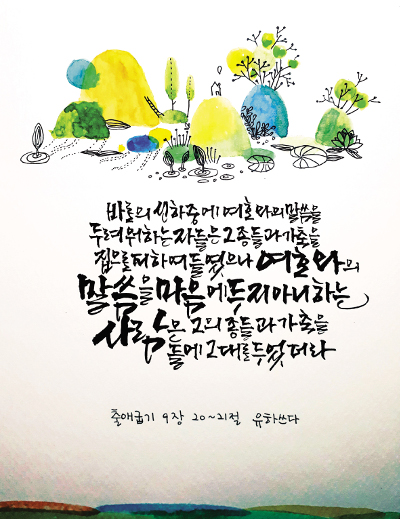 바로의 신하 중에 여호와의 말씀을
두려워하는 자들은 그 종들과 가축을
집으로 피하여 들였으나 여호와의
말씀을 마음에 두지 아니하는
사람은 그의 종들과 가축을
들에 그대로 두었더라
출애굽기 9장 20~21절 유하쓰다